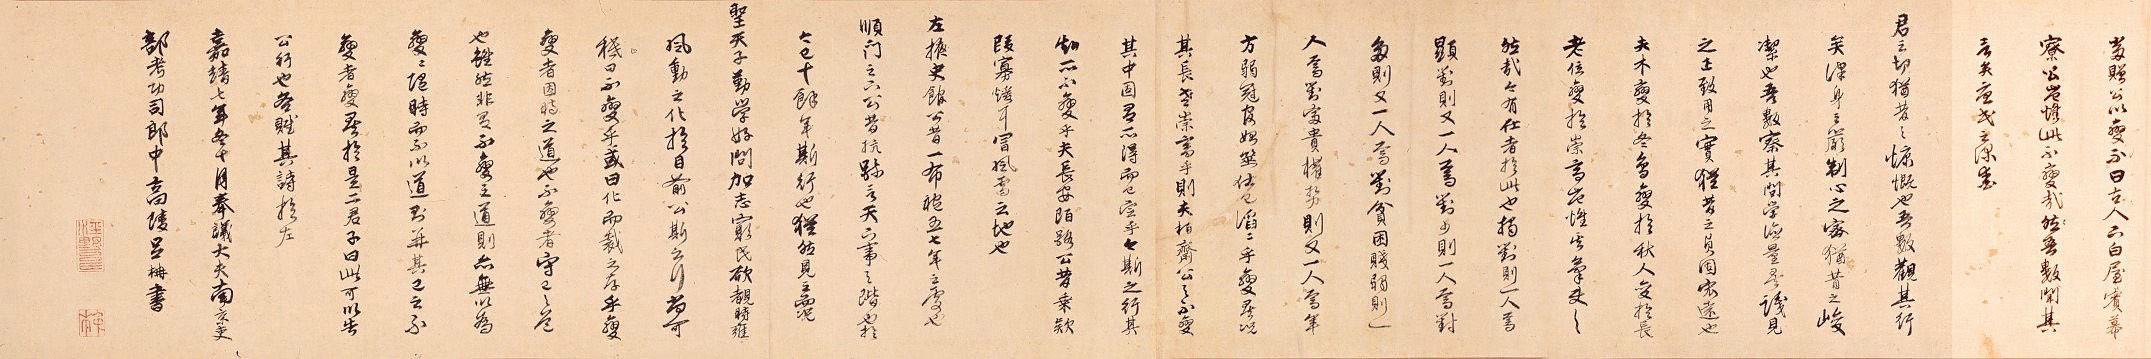 麦贈公以變不曰古人下白屋賓幕
寮公豈惟此不變哉然吾數聞其
言矣
君之切猶昔之慷慨也吾數觀其行
矣澤身之嚴制心之密猶昔之峻
潔也吾數察其問學論量是識見
之士致用之實猶昔之
夫木變於冬 變於秋人變於長
老位變於崇高豈惟
然哉今有仕者於此也獨對則一人焉
顯對則又一人焉對少則一人焉對
多則又一人焉對貧困賤弱則一
人焉對富貴權勢則又一人焉年
方弱冠 仕已滔滔乎變矣況
其長老崇高乎則夫柏齋公之不變
其中固有所得而已定乎今斯之行其
知所不變乎夫長安陌路公昔乘款
段寡 冒風雪之地也
左掖史館公昔一布袍五七年之處也
順門之六公昔抗疏言天下事之階也於
今已十餘年斯行也猶然見之況
聖天子勤學好問加志窮民欲覩時雍
風動之化於目前公斯之行尚可
穆曰不變乎或曰化而裁之存乎變
變者因時之道也不變者守已之
也雖然非有不變之道則亦無以為
變變隨時而不以道對並其已之不
變者變矣於是二君子曰此可以告
公行也各賦其詩於左
嘉靖七年冬十月奉議大夫南京吏
部考功司郎中高陵呂柟書